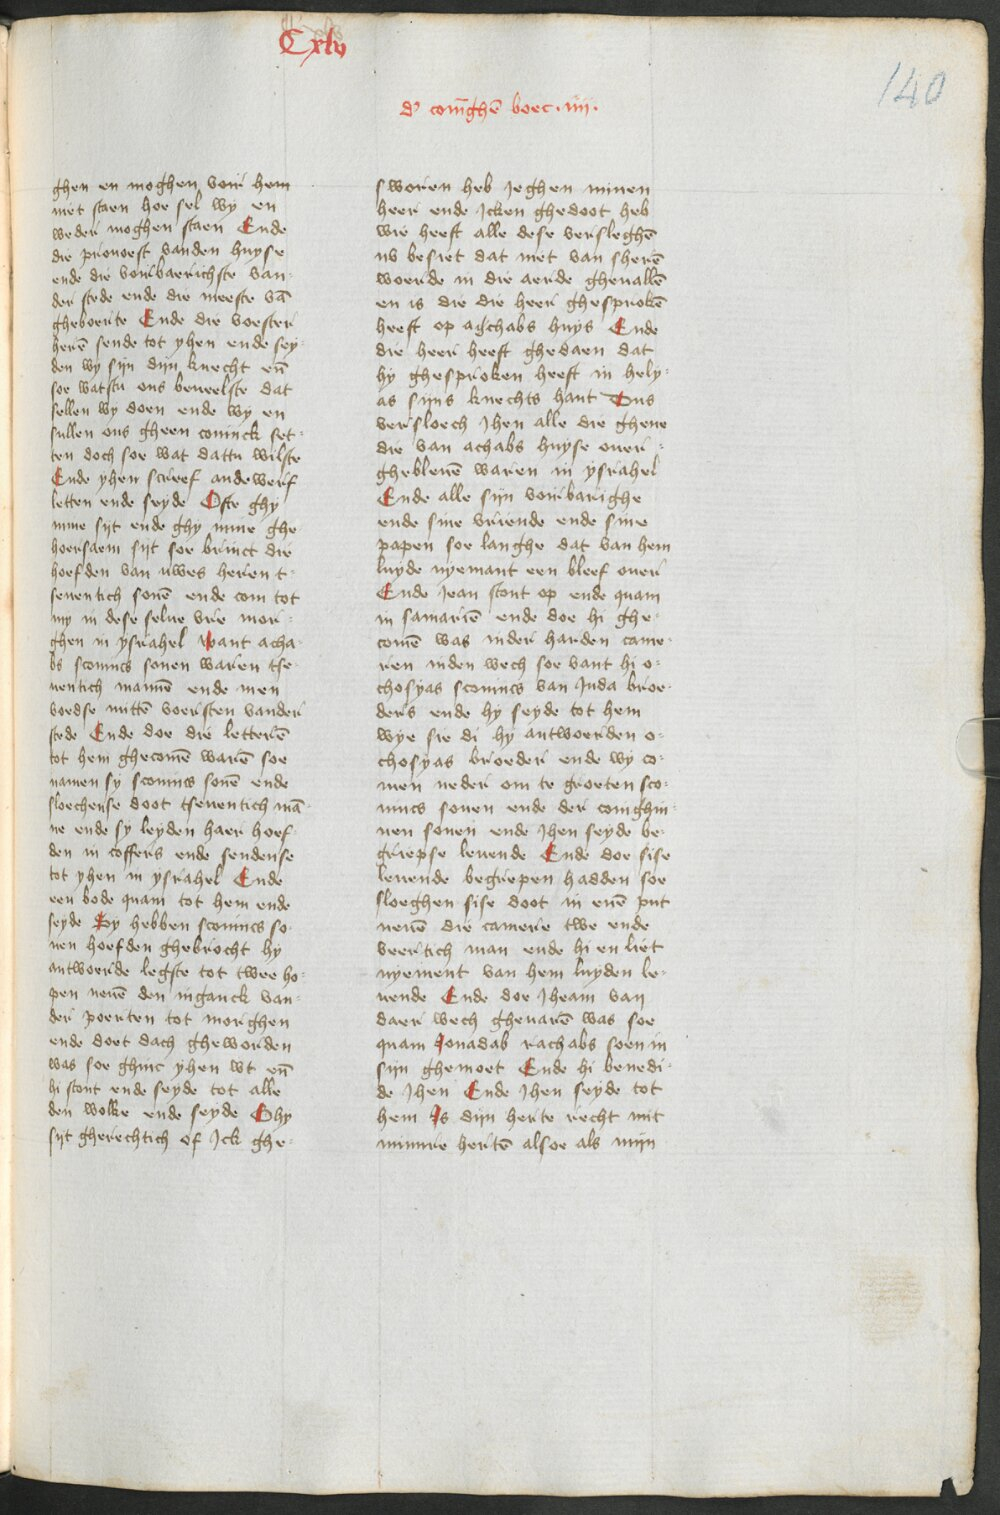 Cxlv
140
d' coni̅ghe̅ boec . iiii .
ghen en moghen voir hem
niet staen hoe sel wy en
weder moghen staen Ende
die provoest vanden huyse
ende die voirbaerichste van-
der stede ende die meeste va̅
gheboerte Ende die voester
here̅ sende tot yhen ende sey-
den wy sijn dijn knecht en̅
soe watstu ons beveelste dat
sellen wy doen ende wy en
sullen ons gheen coninck set-
ten doch soe wat dattu wilste
Ende yhen screef anderwerf
letten ende seyde Oste ghy
mine sijt ende ghy mine ghe
hoersaem sijt soe brinct die
hoefden van uwes heren t-
seventich sone̅ ende com tot
my in dese selve vre mor-
ghen in ysrahel want acha-
bs sconincs sonen waren tse-
ventich manne̅ ende men
voedse mitte̅ voersten vander
stede Ende doe die lettere̅
tot hem ghecome̅ ware̅ soe
namen sy sconincs sone̅ ende
sloechense doot tseventich ma̅-
ne ende sy leyden haer hoef-
den in coffers ende sendense
tot yhen in ysrahel Ende
een bode quam tot hem ende
seyde Sy hebben sconincs so-
nen hoefden ghebrocht hy
antwoerde legste tot twee ho-
pen neve̅ den inganck van-
der poerten tot morghen
ende doet dach gheworden
was soe ghinc yhen wt en̅
hi stont ende seyde tot alle
den wolke ende seyde Ghy
sijt gherechtich of Ick ghe-
sworen heb jeghen minen
heer ende Icken ghedoot heb
wie heeft alle dese versleghe̅
nv besiet dat niet van shere̅
woerde in die aerde ghevalle̅
en is die die heer ghesproke̅
heeft op agchabs huys Ende
die heer heeft ghedaen dat
hy ghesproken heeft in hely-
as sijns knechts hant Dus
versloech Jhen alle die ghene
die van achabs huyse over-
ghebleve̅ waren in ysrahel
Ende alle sijn voirbarighe
ende sine vriende ende sine
papen soe langhe dat van hem
luyde nyemant een bleef over
Ende Jean stont op ende quam
in samarie̅ ende doe hi ghe-
come̅ was inder harden came-
ren inden wech soe vant hi o-
chosyas sconincs van Juda broe-
ders ende hy seyde tot hem
wye sie di hy antwoerden o-
chosyas broeder ende wy co-
men neder om te groeten sco-
nincs sonen ende der coninghin-
nen sonen ende Jhen seyde be-
griepse levende Ende doe sise
levende begrepen hadden soe
sloeghen sise doot in ene̅ put
neve̅ die camere twe ende
veertich man ende hi en liet
nyement van hem luyden le-
vende Ende doe Jheam van
daer wech ghevare̅ was soe
quam Jonadab rachabs soen in
sijn ghemoet Ende hi benedi-
de Jhen Ende Jhen seyde tot
hem Is dijn herte recht mit
minnre herte̅ alsoe als mijn